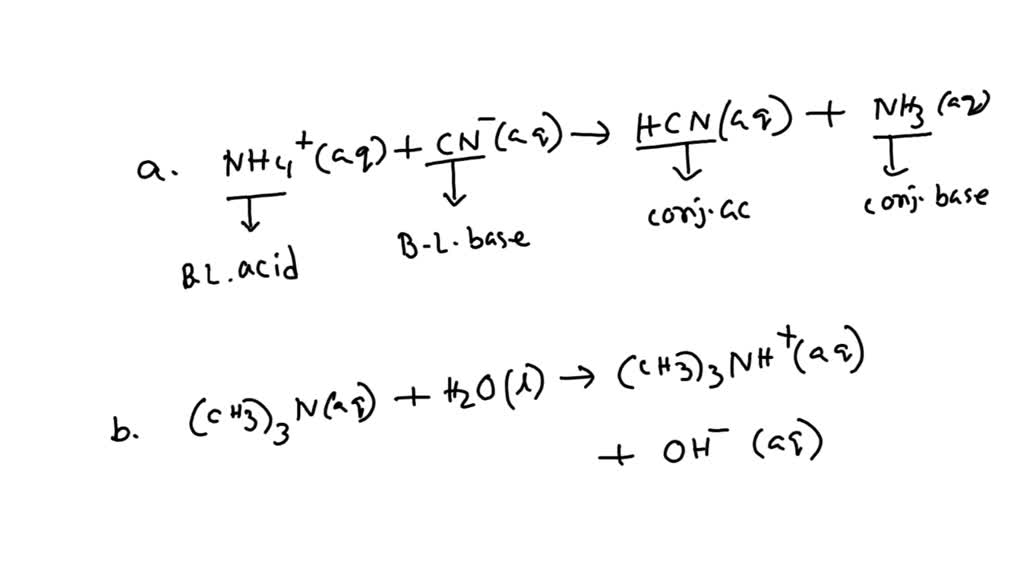 a. NH4+(aq) + CN-(aq) → HCN(aq) + NH3(aq)
BL.acid B-L.base conj.ac conj.base
b. (CH3)3N(aq) + H2O(l) → (CH3)3NH+(aq)
+ OH- (aq)